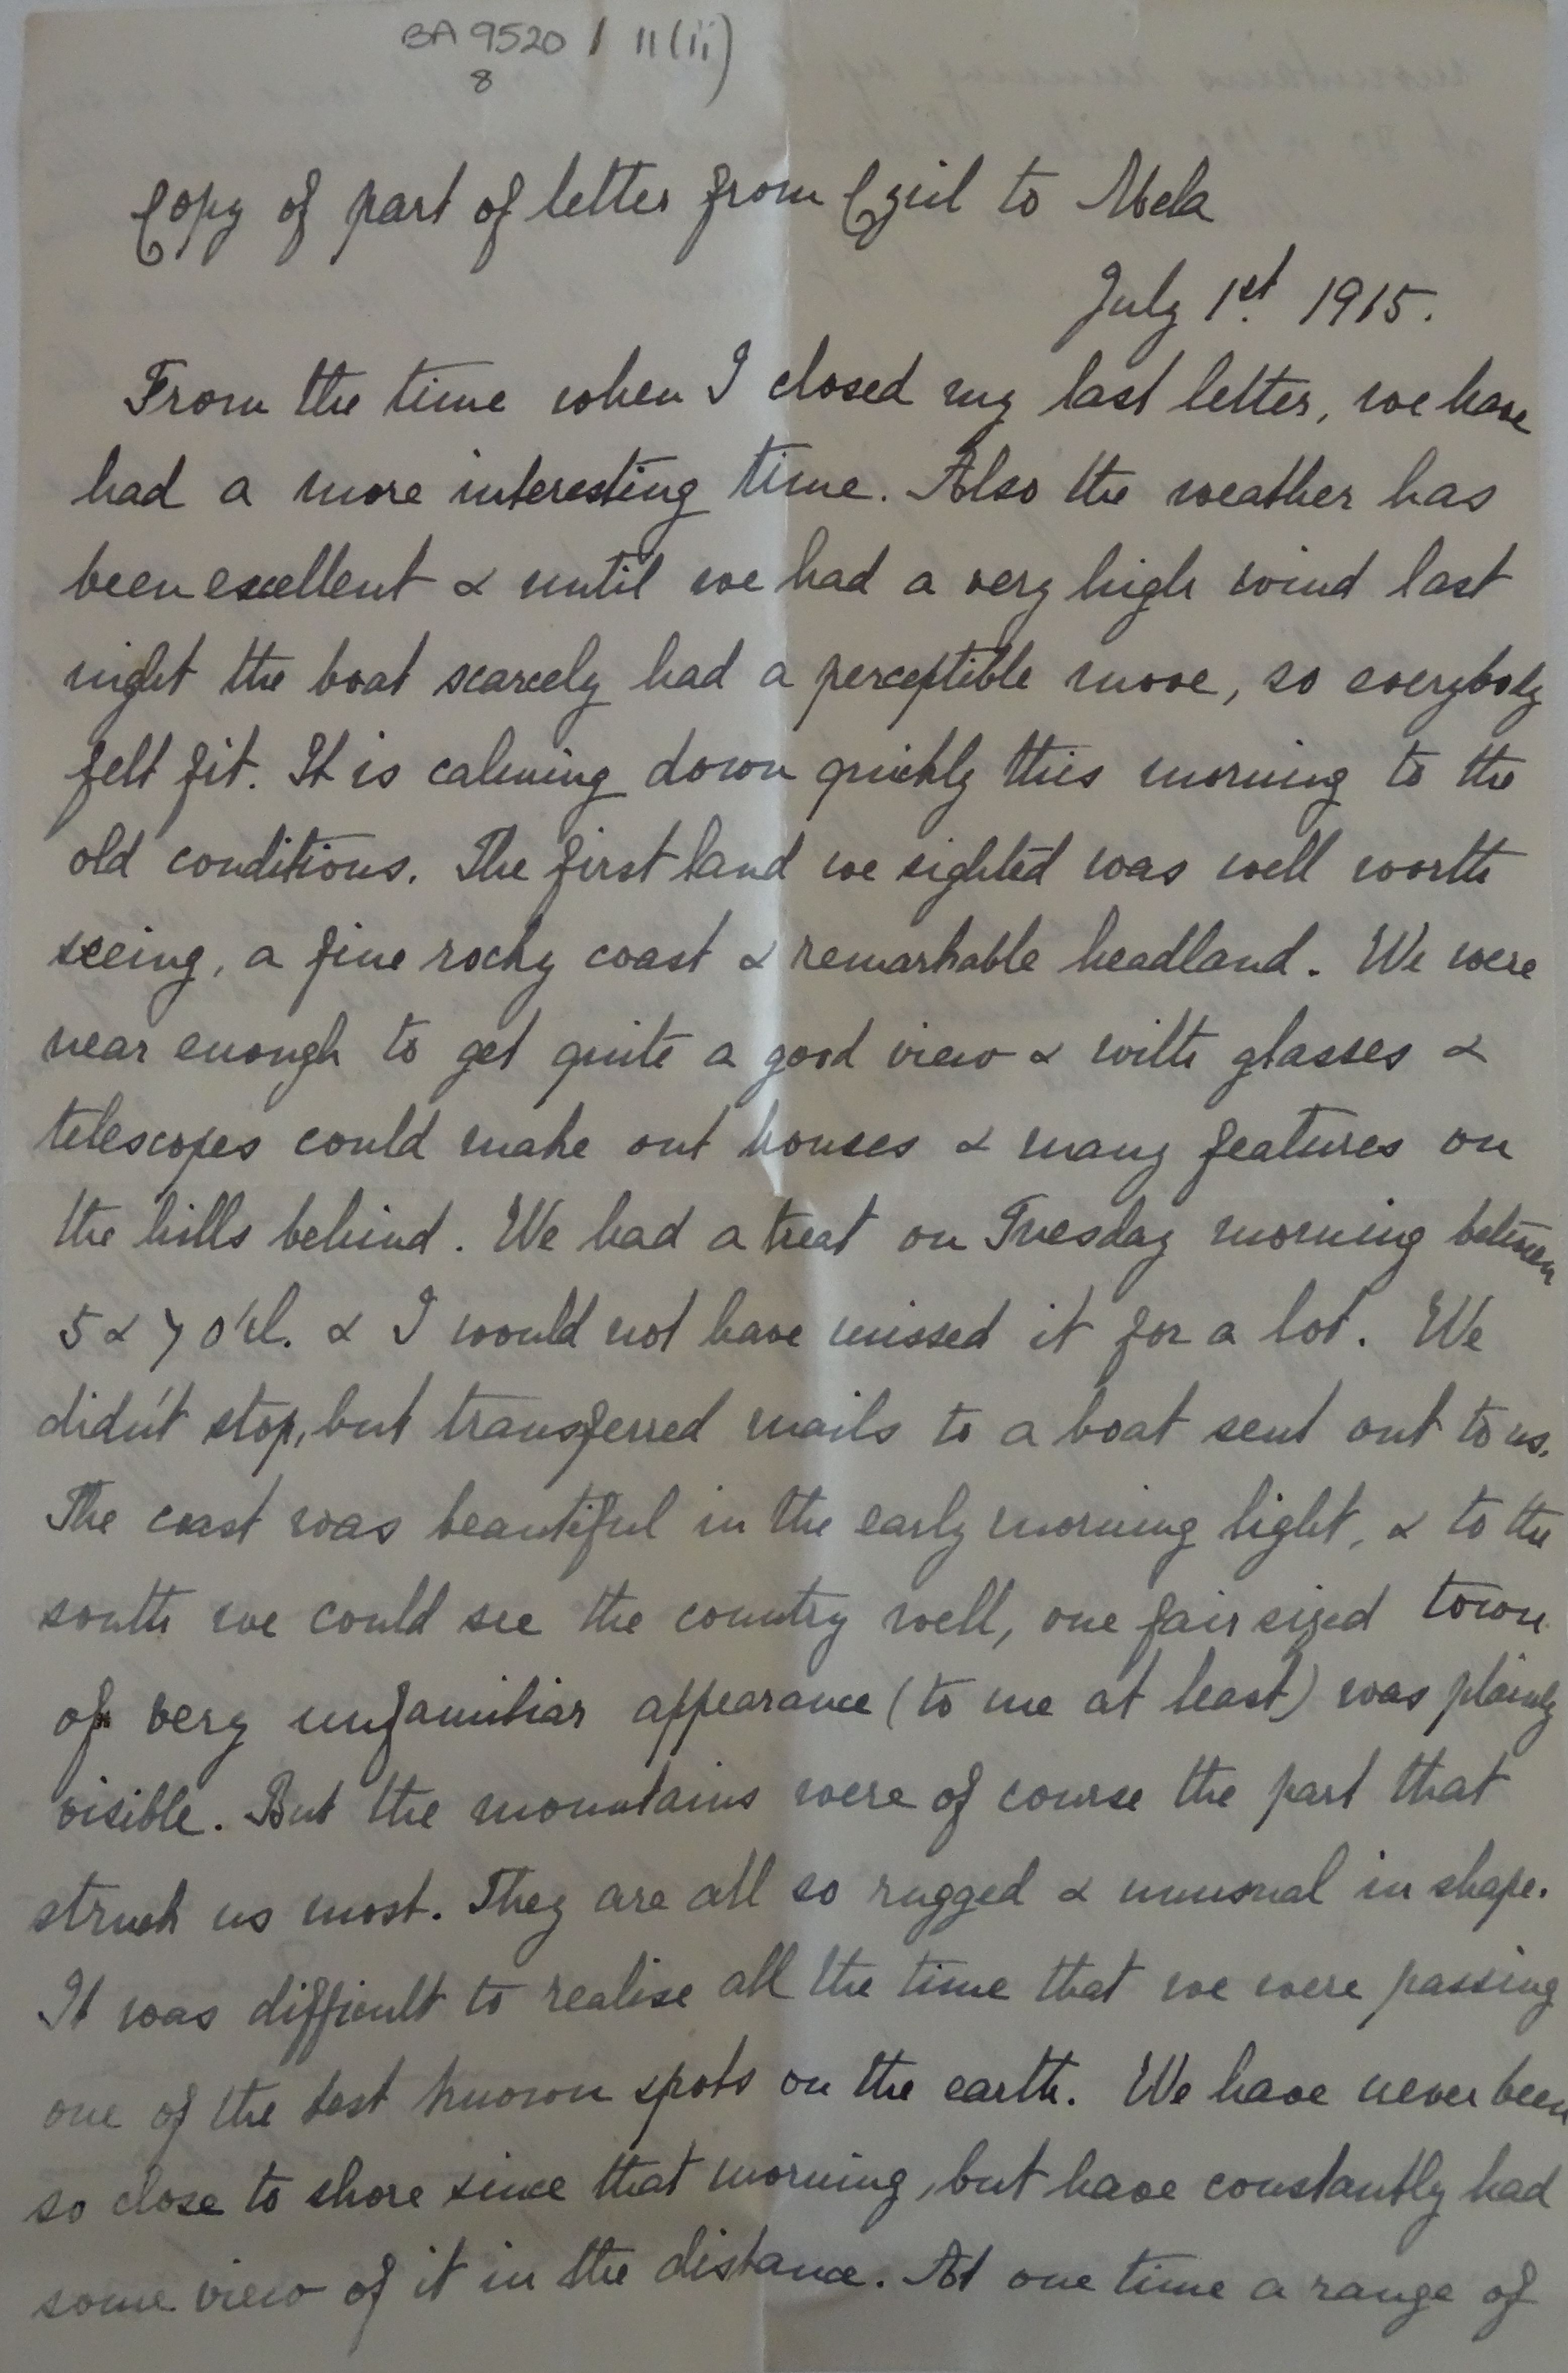 BA 9520 / 11(ii)
8
Copy of part of letter from Cyril to Mela
July 1st. 1915.
From the time when I closed my last letter, we have
had a more interesting time. Also the weather has
been excellent & until we had a very high wind last
night the boat scarcely had a perceptible move, so everybody
felt fit. It is calming down quickly this morning to the
old conditions. The first land we sighted was well worth
seeing, a fine rocky coast & remarkable headland. We were
near enough to get quite a good view & with glasses &
telescopes could make out houses & many features on
the hills behind. We had a treat on Tuesday morning between
5 & 7 o'cl. & I would not have missed it for a lot. We
didn't stop, but transferred mails to a boat sent out to us.
The coast was beautiful in the early morning light, & to the
south we could see the country well, one fair sized town
of very unfamiliar appearance (to me at least) was plainly
visible. But the mountains were of course the part that
struck us most. They are all so rugged & unusual in shape.
It was difficult to realise all the time that we were passing
one of the best known spots on the earth. We have never been
so close to shore since that morning, but have constantly had
some view of it in the distance. At one time a range of